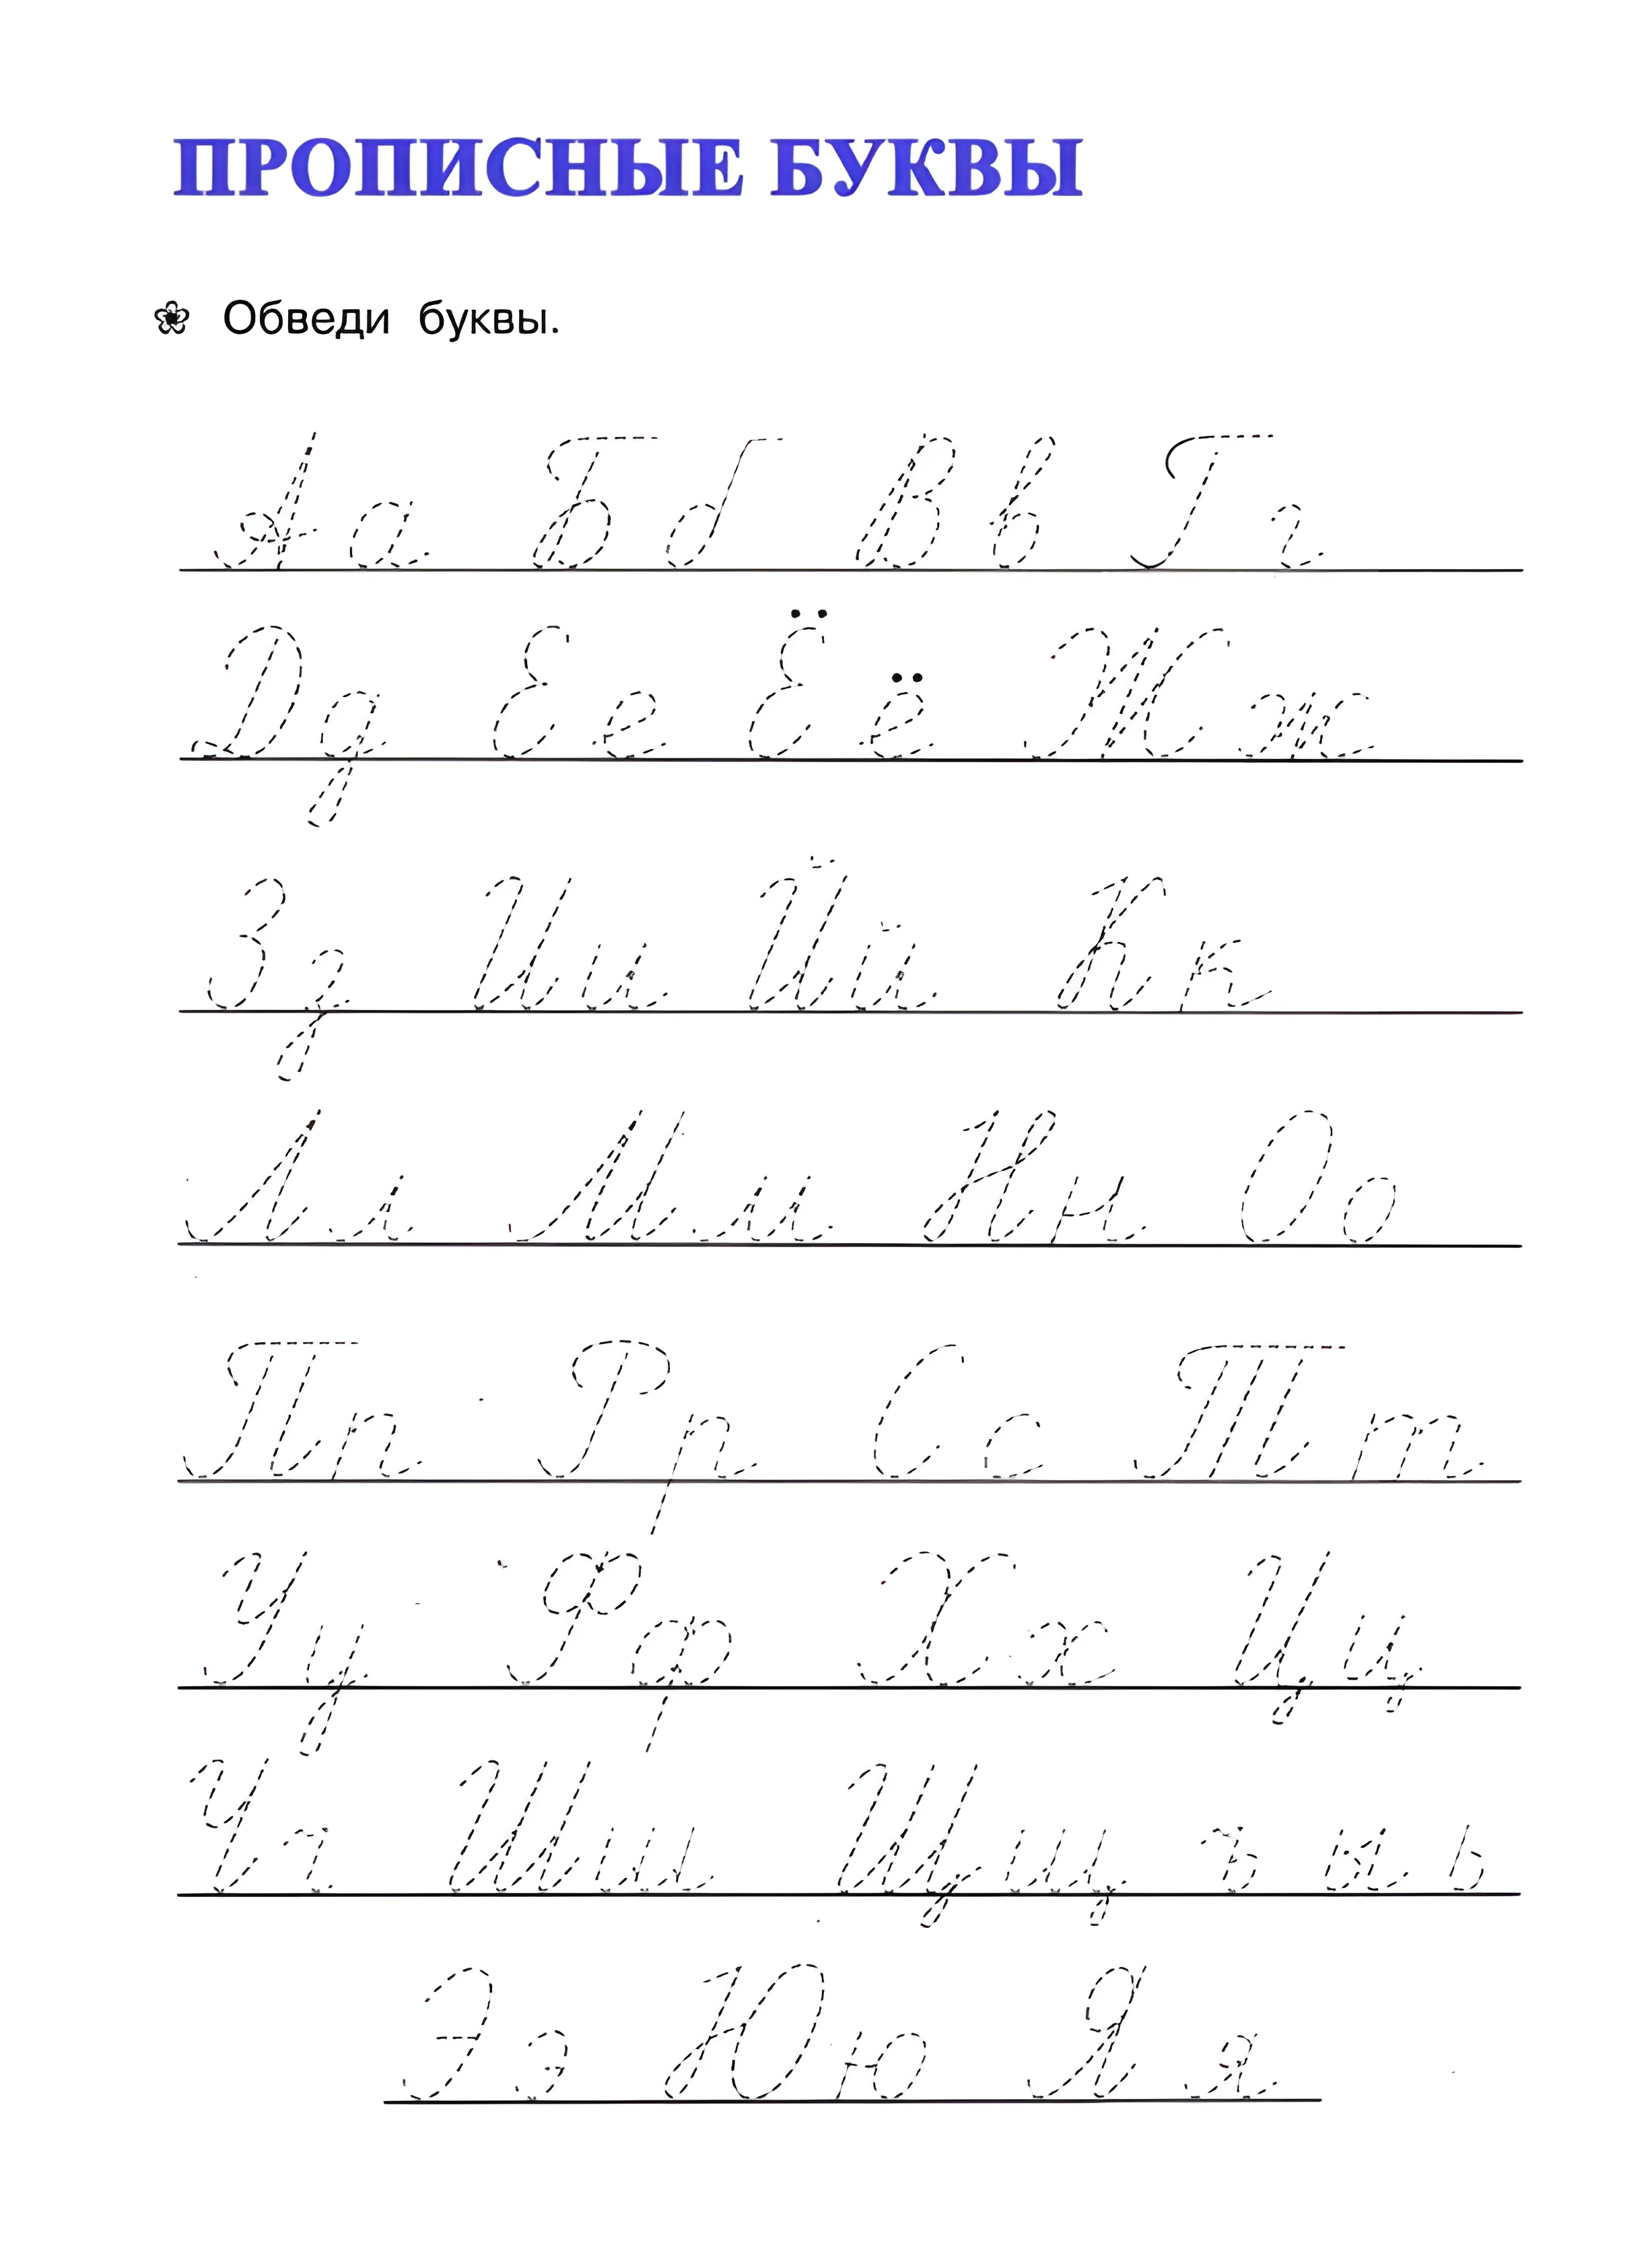 ПРОПИСНЫЕ БУКВЫ
Обведи буквы.
А а Б б В в Г г
Д д Е е Ё ё Ж ж
З з И и Й й К к
Л л М м Н н О о
П п Р р С с Т т
У у Ф ф Х х Ц ц
Ч ч Ш ш Щ щ ъ ы ь
Э э Ю ю Я я